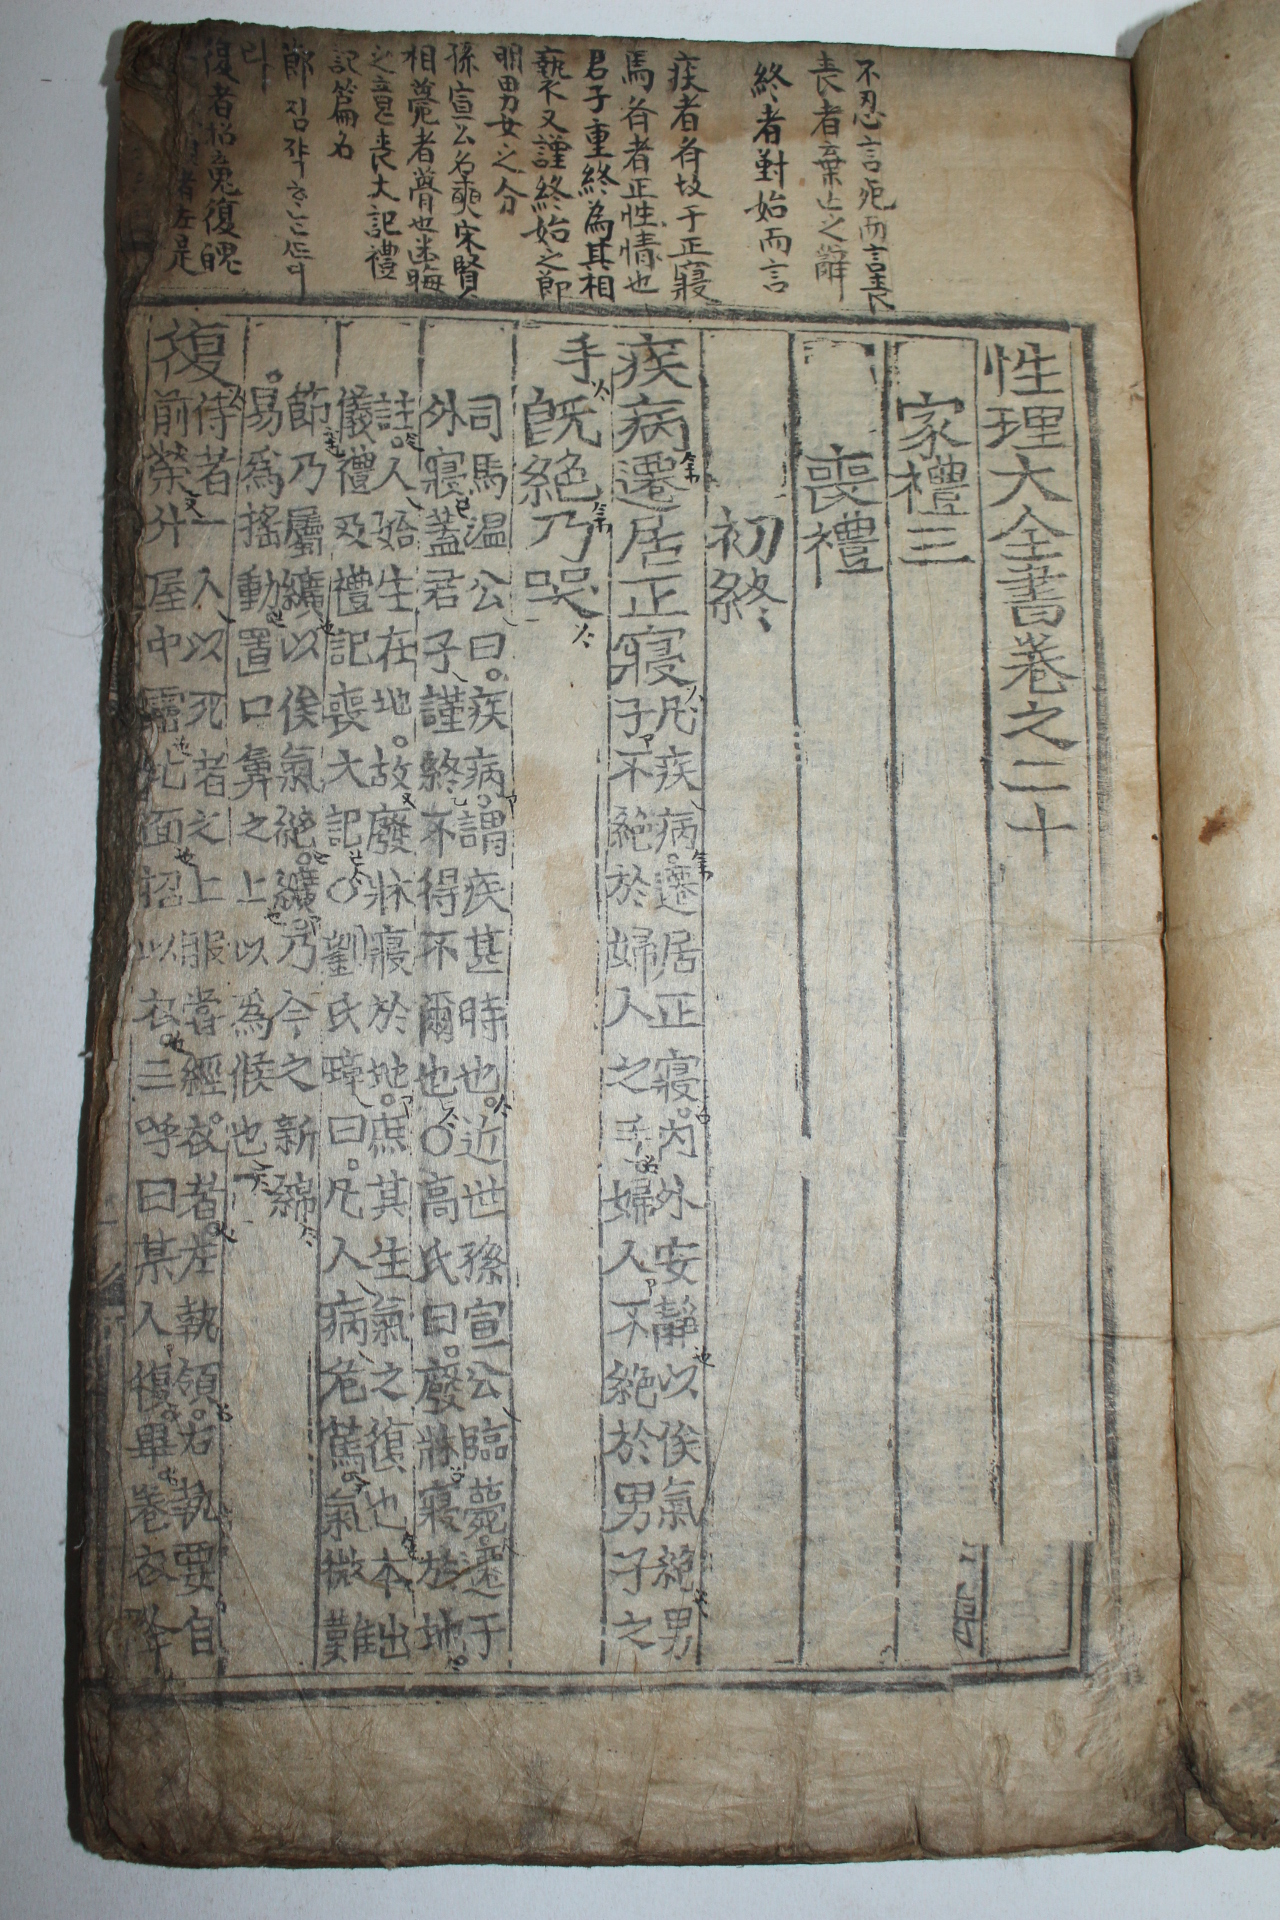 不忍言死而言喪
喪者棄亾之辭
終者對始而言
疾者各故于正寢
焉各者正性情也
君子重終為其相
褻又謹終始之節
明男女之分
孫宣公名奭宋賢人
相薨者尊也迷晦
之言喪大記禮
記篇名
節
라
復者招䰟復魄
性理大全書卷之二十
家禮三
喪禮
初終
疾病遷居正寢
凡疾病。遷居正寢。內外安靜以俟氣絶男
子不絶於婦人之手婦人不絶於男子之
手
旣絶乃哭
司馬溫公曰。疾病。謂疾甚時也。近世孫宣公臨薨遷于
外寢蓋君子謹終不得不爾也。○高氏曰。廢牀寢於地
註。人始生在地。故廢牀寢於地。庶其生氣之復也本出
儀禮及禮記喪大記○劉氏璋曰。凡人病危篤氣微難
節乃屬纊以俟氣絶。纊乃今之新綿
易爲搖動置口鼻之上以爲候也
復
侍者一人以死者之上服嘗經衣者左執領。右執要自
前榮升屋中霤北面招以衣。三呼曰某人復畢卷衣降